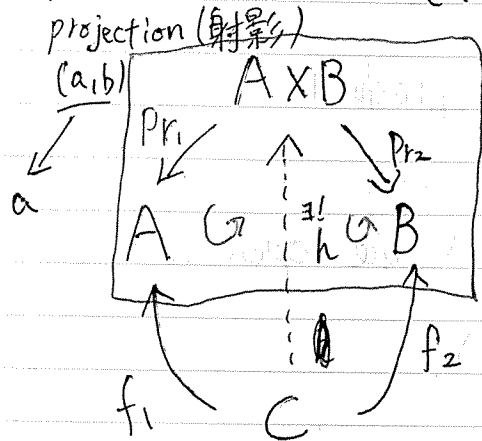 projection (射影)
(a,b)
A×B
Pr₁
Pr₂
a
A
∃!
h
B
f₁
f₂
C